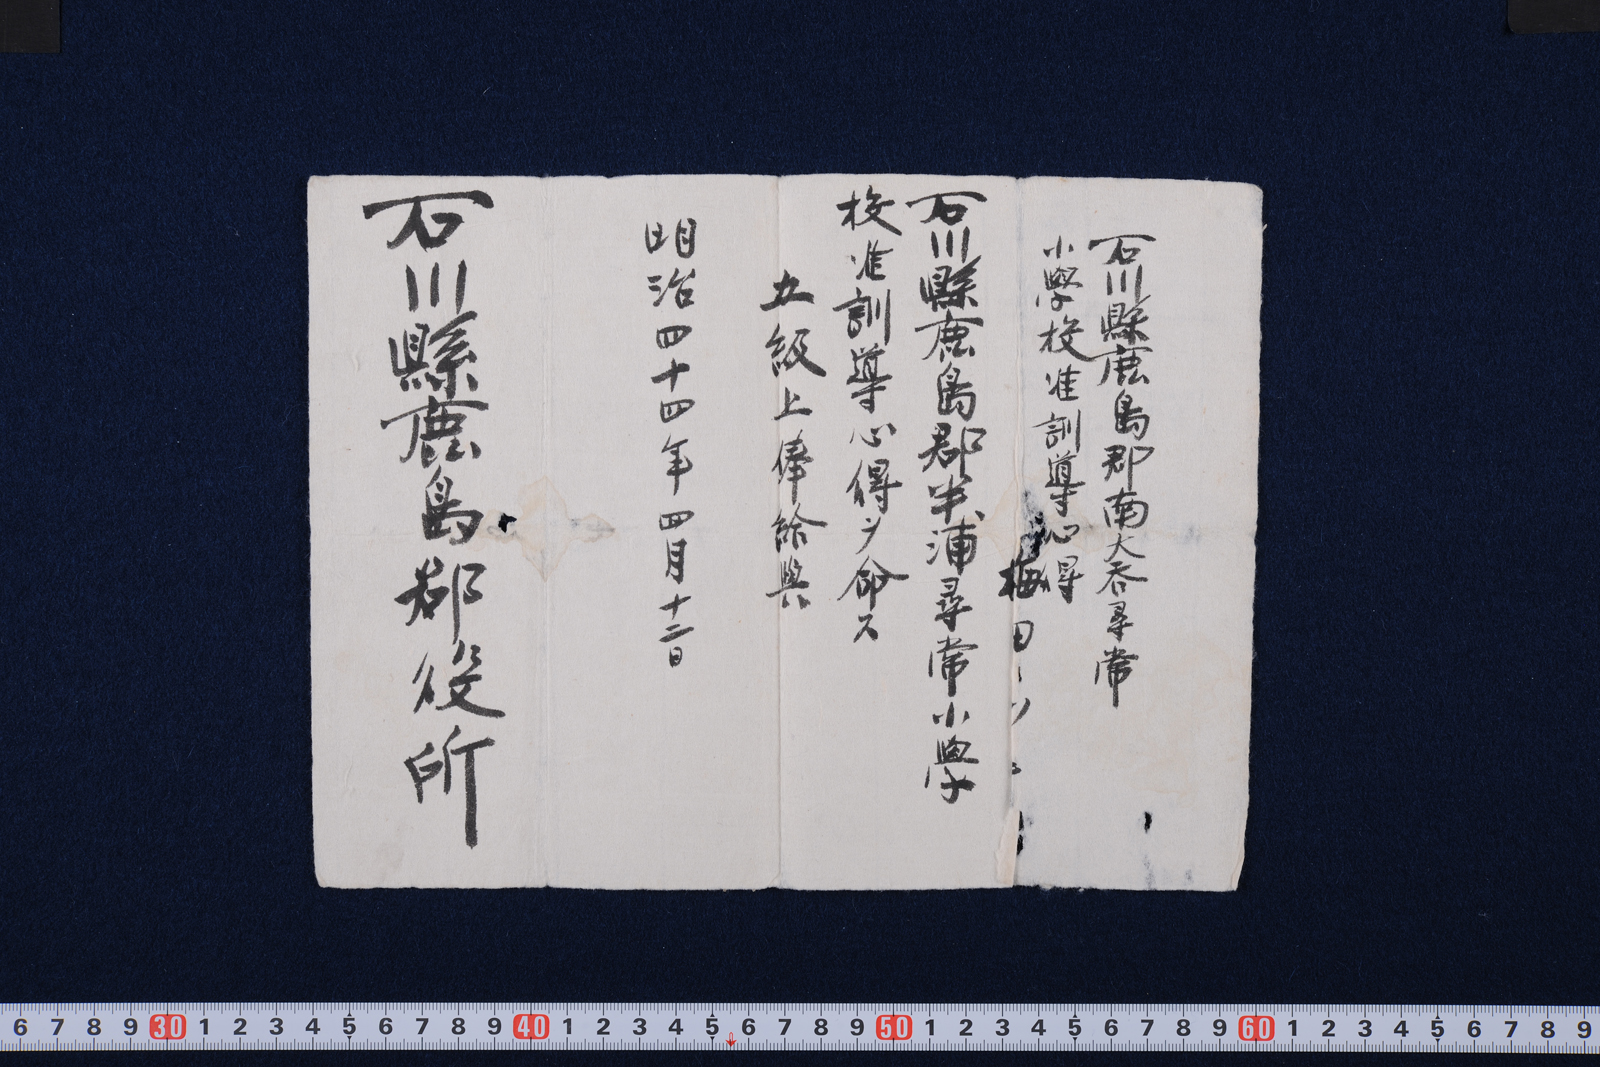 石川縣鹿島郡南大呑尋常
小學校准訓導心得
梅田
石川縣鹿島郡半浦尋常小學
校准訓導心得ヲ命ス
五級上俸給與
明治四十四年四月十二日
石川縣鹿島郡役所
6 7 8 9 30 1 2 3 4 5 6 7 8 9 40 1 2 3 4 5 6 7 8 9 50 1 2 3 4 5 6 7 8 9 60 1 2 3 4 5 6 7 8 9